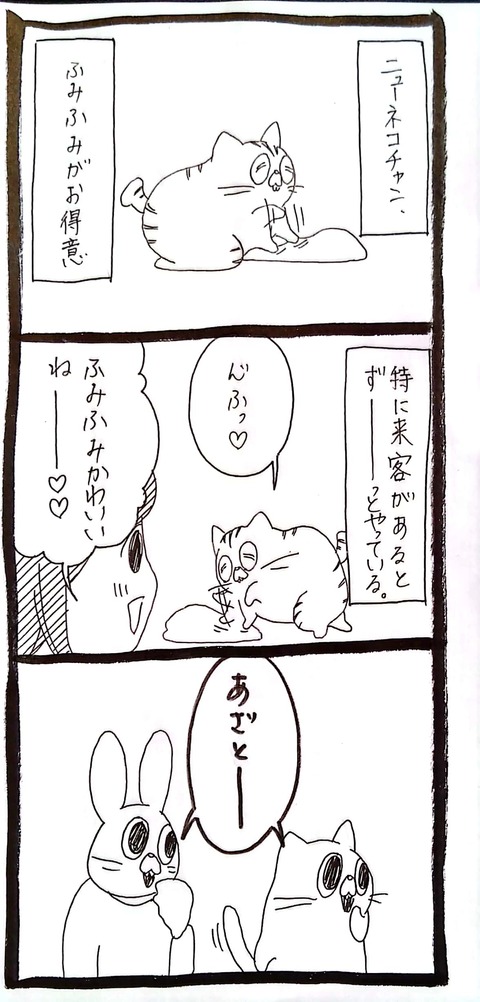 ニューネコチャン、
ふみふみがお得意
特に来客があると
ず――っとやっている。
んふっ♡
ふみふみかわいい
ね――♡♡
あざと――